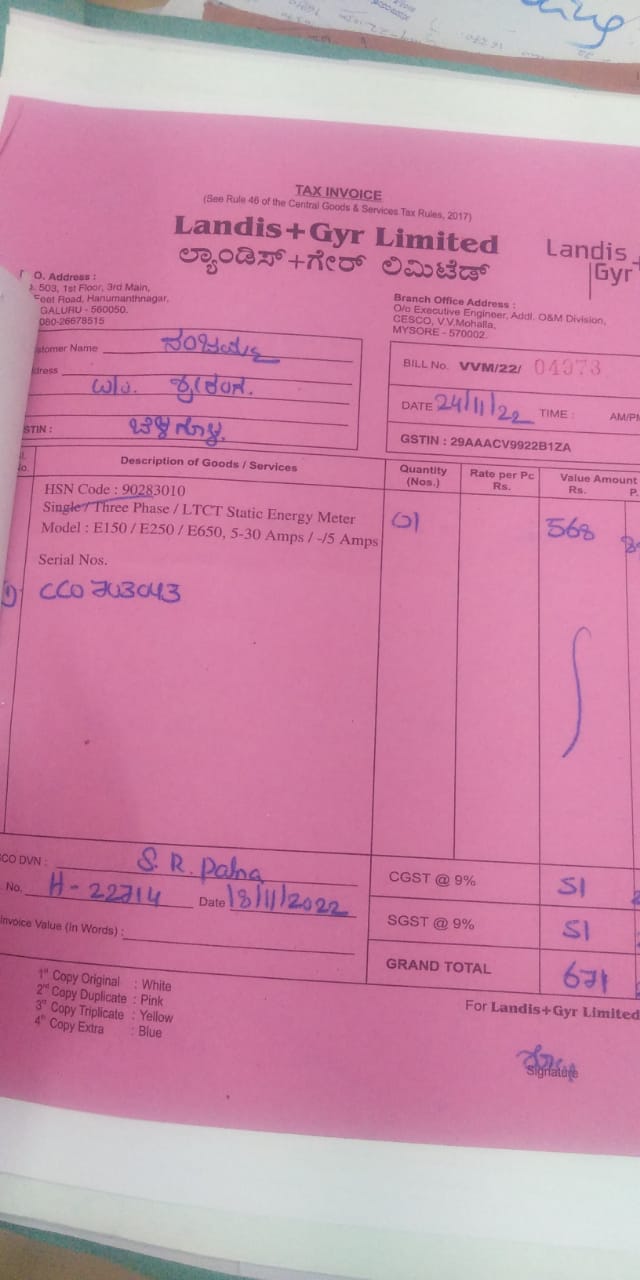 TAX INVOICE
(See Rule 46 of the Central Goods & Services Tax Rules, 2017)
Landis+Gyr Limited
ಲ್ಯಾಂಡಿಸ್+ಗೇರ್ ಲಿಮಿಟೆಡ್
Landis+
Gyr
O. Address :
503, 1st Floor, 3rd Main,
Feet Road, Hanumanthnagar,
GALURU - 560050.
080-26678515
Branch Office Address :
O/o Executive Engineer, Addl. O&M Division,
CESCO, V.V.Mohalla,
MYSORE - 570002.
stomer Name
dress
STIN :
BILL No. VVM/22/ 04973
DATE 24/11/22 TIME : AM/PM
GSTIN : 29AAACV9922B1ZA
No.
Description of Goods / Services
Quantity (Nos.)
Rate per Pc Rs.
Value Amount
Rs. P.
HSN Code : 90283010
Single / Three Phase / LTCT Static Energy Meter
Model : E150 / E250 / E650, 5-30 Amps / -/5 Amps
01 568
Serial Nos.
1) CC0703043
CO DVN : S. R. Patna
No. H-22714 Date 18/11/2022
Invoice Value (in Words) :
CGST @ 9% 51
SGST @ 9% 51
GRAND TOTAL 671
1st Copy Original : White
2nd Copy Duplicate : Pink
3rd Copy Triplicate : Yellow
4th Copy Extra : Blue
For Landis+Gyr Limited
Signature